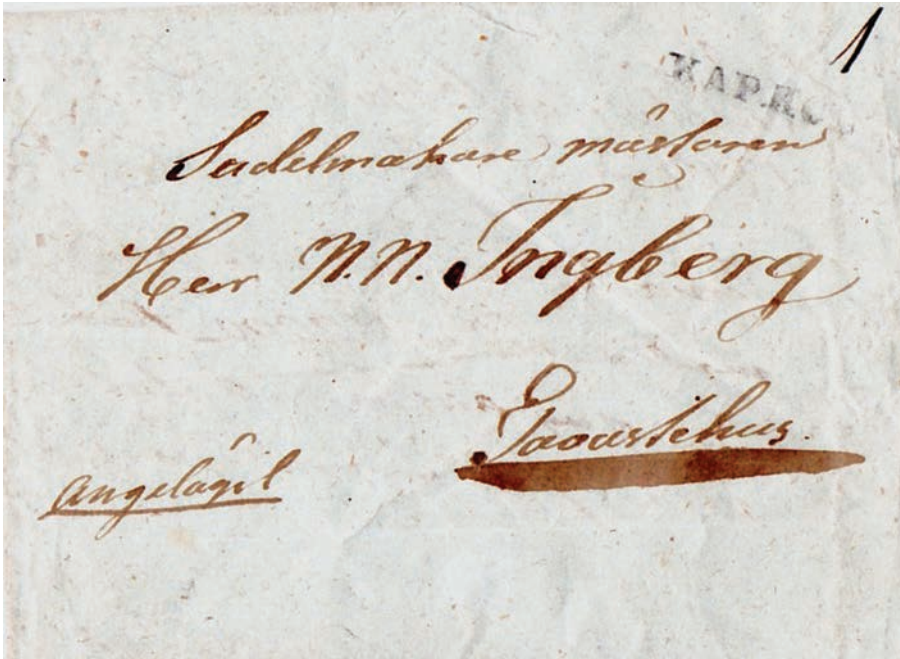 1
Sadelmakare mästaren
Herr N.N. Ingberg
Tavastehus.
angelägit